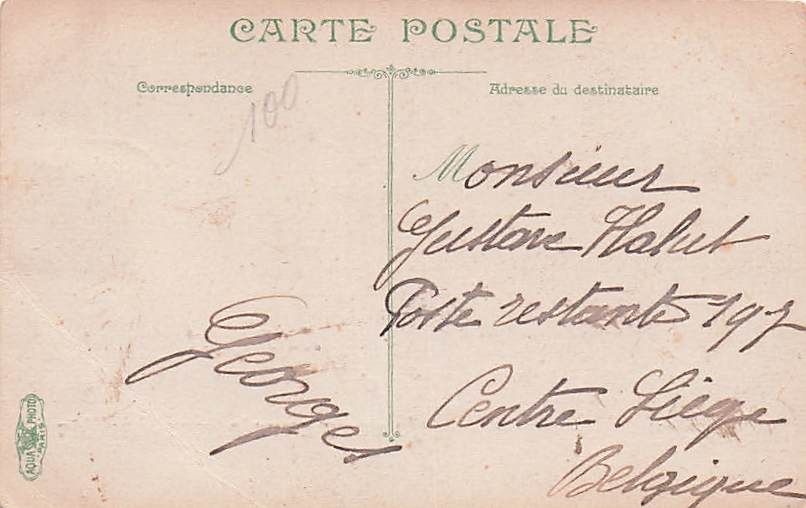 CARTE POSTALE
Correspondance
Adresse du destinataire
100
Monsieur
Gustave Halut
Poste restante 197
Centre Liège
Belgique
Georges
AQUA PHOTO
PARIS